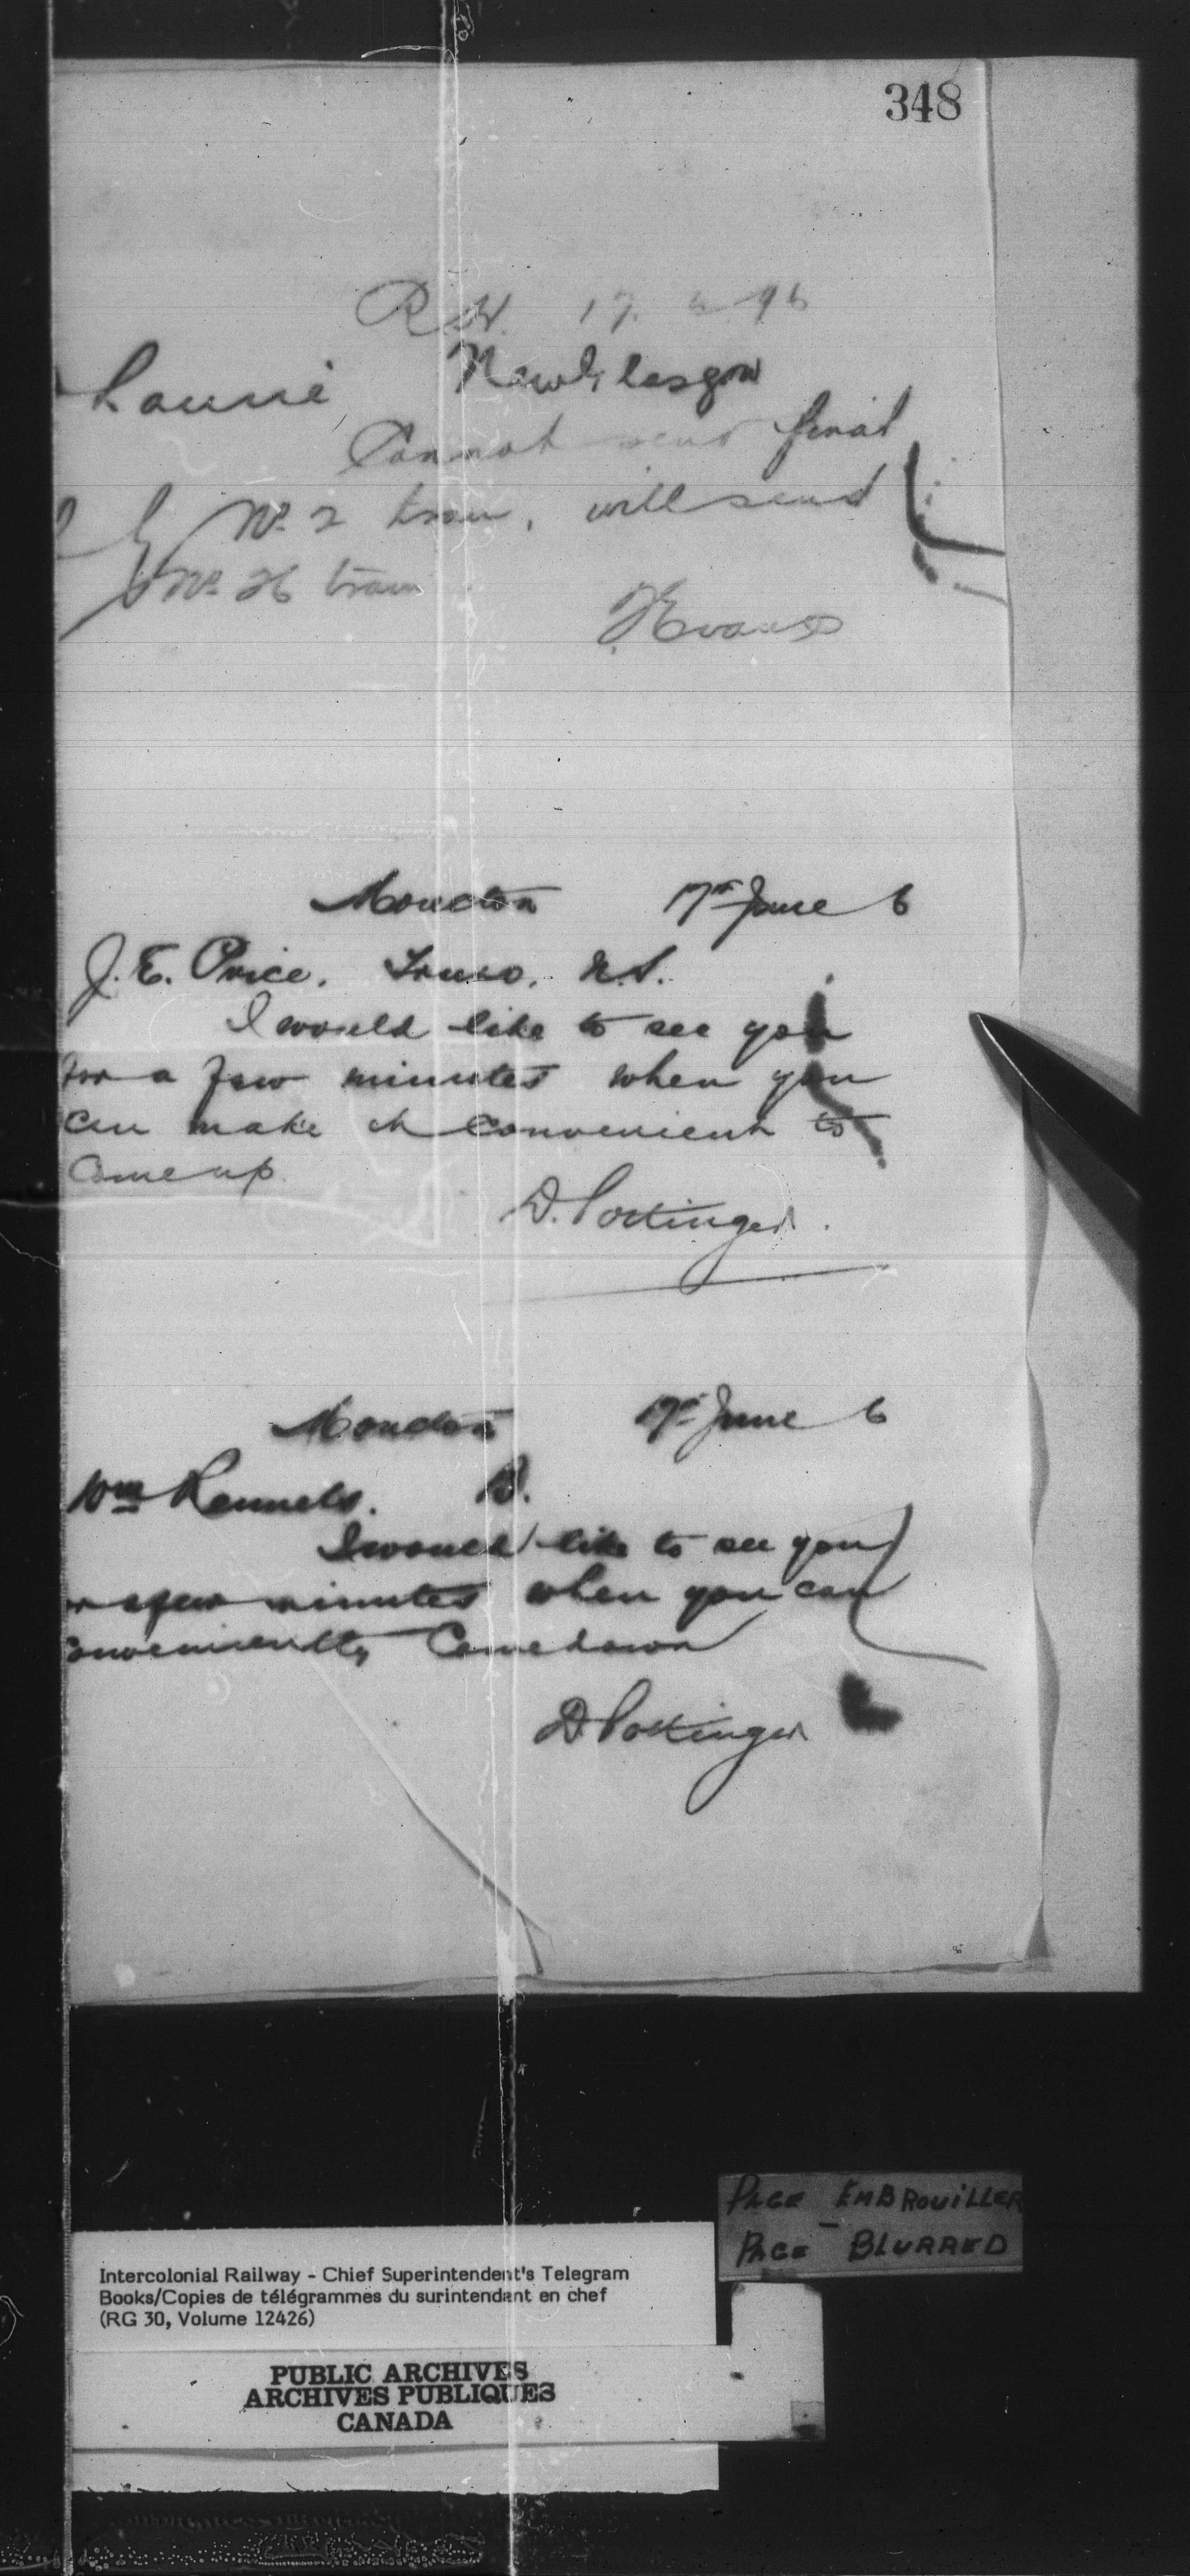 348
R W. 17. 6 96
Laurie New Glasgow
Cannot send final
No. 2 train, will send
No. 26 train
Evans
Moncton 17th June 6
J. E. Price. Truro, N.S.
I would like to see you
for a few minutes when you
can make it convenient to
Come up.
D. Pottinger.
Moncton 17th June 6
Wm Rennels. B.
I would like to see you
a few minutes when you can
conveniently Come down
D Pottinger
PAGE EMBROUILLER
PAGE - BLURRED
Intercolonial Railway - Chief Superintendent's Telegram
Books/Copies de télégrammes du surintendant en chef
(RG 30, Volume 12426)
PUBLIC ARCHIVES
ARCHIVES PUBLIQUES
CANADA